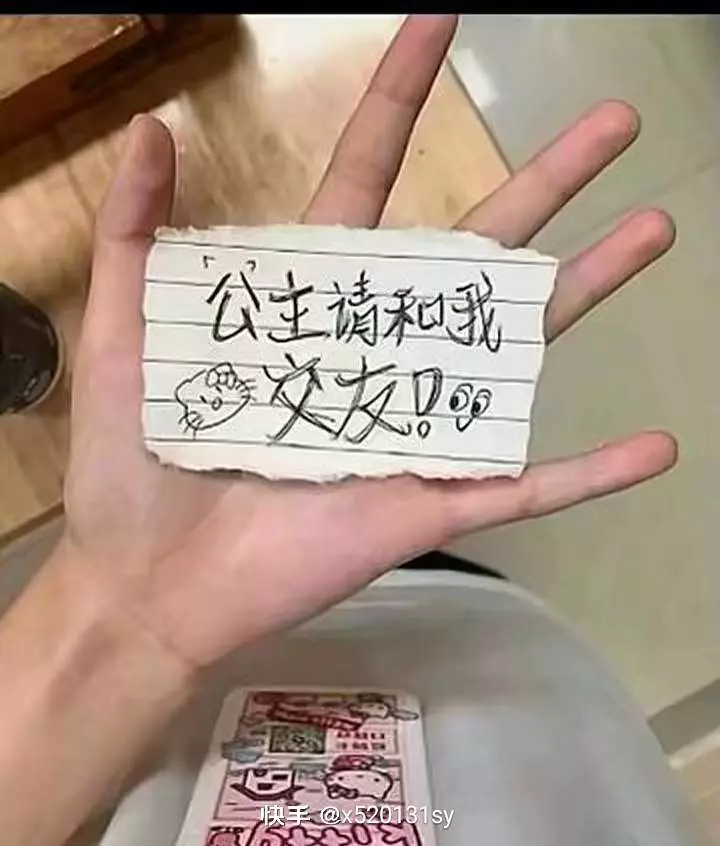 「公」主请和我
交友!
快手 @x520131sy